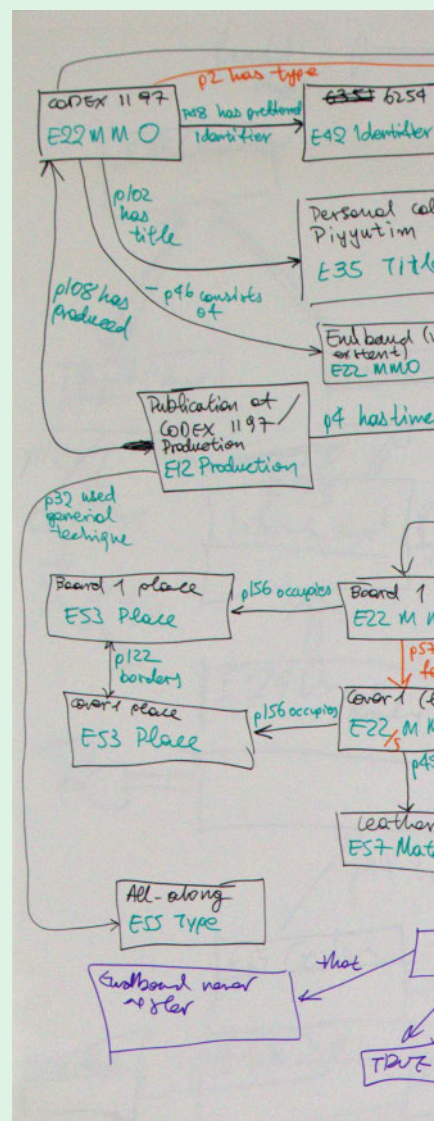 p2 has type
CODEX 1197
E22 M M O
p48 has preffered
identifier
6254
E42 Identifier
p102
has
title
Personal
Piyyutim
E35
p108 has
produced
p46 consists
of
Endband
extent)
E22 MMO
Publication of
CODEX 1197
Production
E12 Production
p4 has time
p32 used
general
technique
Board 1 place
E53 Place
p156 occupies
Board 1
E22 M
p122
borders
Cover 1 place
E53 Place
p156 occupies
Cover 1
E22/s
Leather
E57
All-along
E55 Type
Endband never
that
TRUE